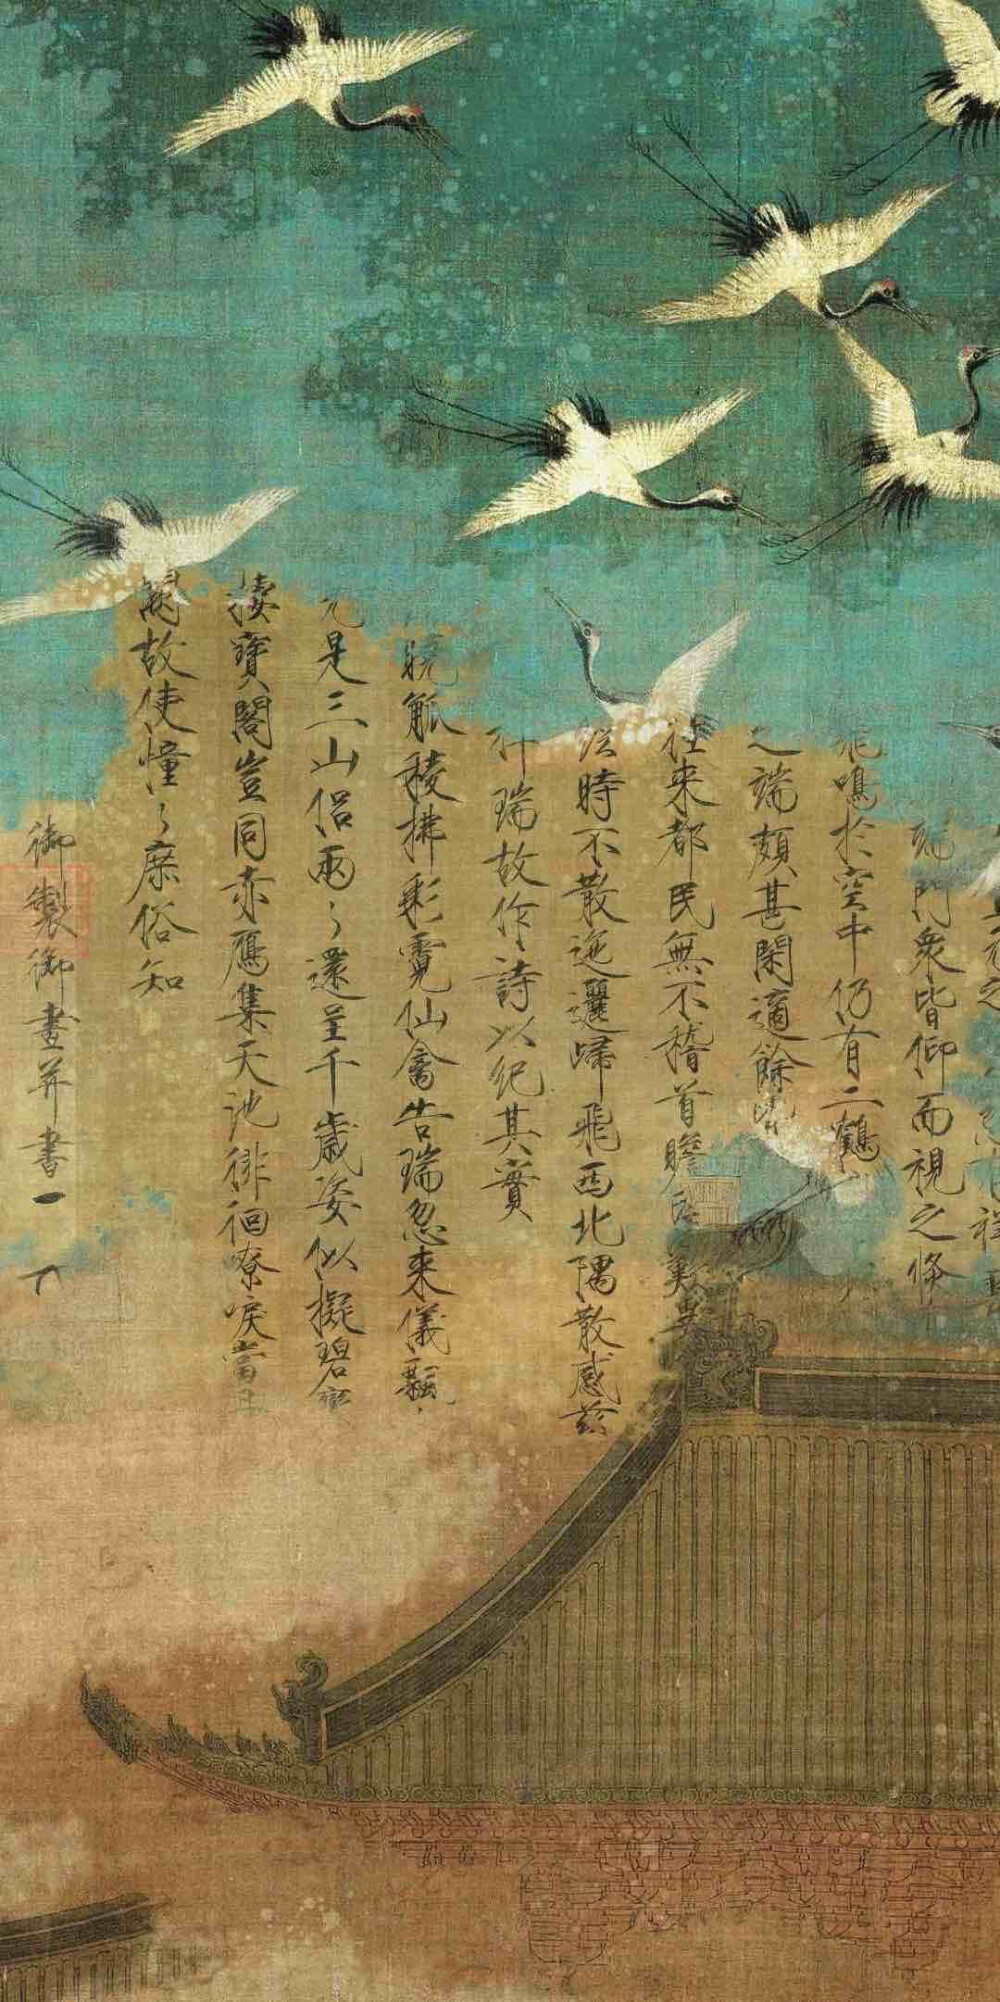 元之
端門衆皆仰而視之倏
飛鳴於空中仍有二鶴
之端頗甚閑適餘皆
往来都民無不稽首瞻望歎異
經時不散迤邐歸飛西北隅散感茲
祥瑞故作詩以紀其實
曉觚稜拂彩霓仙禽告瑞忽来儀飄
元是三山侶兩〻還呈千歲姿似擬碧鸞
棲寶閣豈同赤鴈集天池徘徊嘹唳當丹
闕故使憧〻庶俗知
御製御畫并書